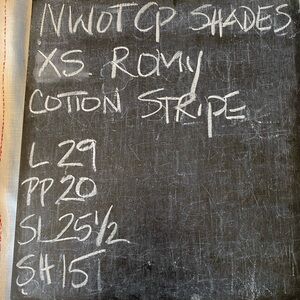 NWOT CP SHADES
XS ROMY
COTTON STRIPE
L 29
PP 20
SL 25 1/2
SH 15